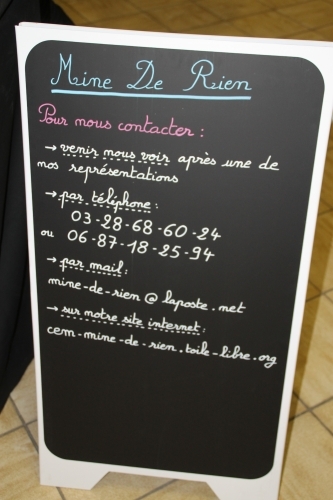 Mine De Rien
Pour nous contacter :
→ venir nous voir après une de
nos représentations
→ par téléphone :
03-28-68-60-24
ou 06-87-18-25-94
→ par mail :
mine-de-rien @ laposte.net
→ sur notre site internet :
cem-mine-de-rien.toile-libre.org